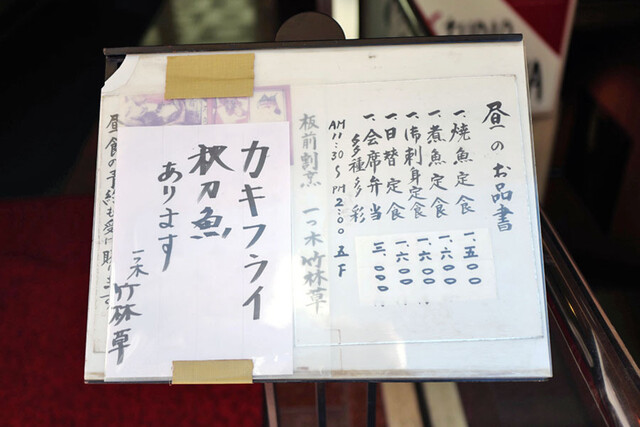 昼のお品書
一、焼魚定食 一、五〇〇
一、煮魚定食 一、六〇〇
一、御刺身定食 一、六〇〇
一、日替定食 一、六〇〇
一、会席弁当 三、〇〇〇
多種多彩
AM11:30〜PM2:00
板前割烹 一つ木 竹林草
カキフライ
秋刀魚
あります
一ツ木 竹林草
昼食の予約も受け賜ります